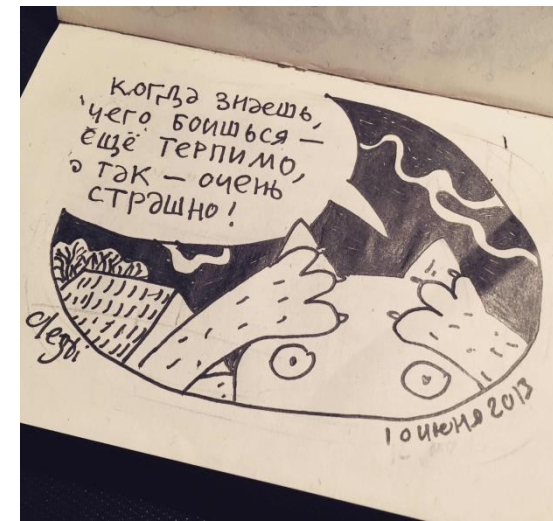 когда знаешь,
чего боишься —
ещё терпимо,
а так — очень
страшно!
10 июня 2013